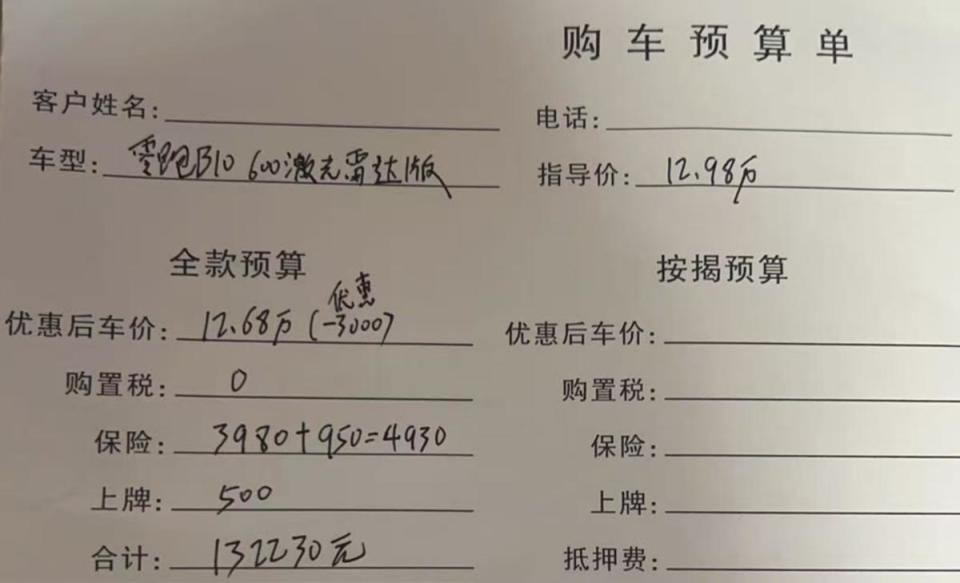 购车预算单
客户姓名:
电话:
车型: 零跑B10 600激光雷达版
指导价: 12.98万
全款预算
优惠后车价: 12.68万 (优惠-3000)
购置税: 0
保险: 3980+950=4930
上牌: 500
合计: 132230元
按揭预算
优惠后车价:
购置税:
保险:
上牌:
抵押费: